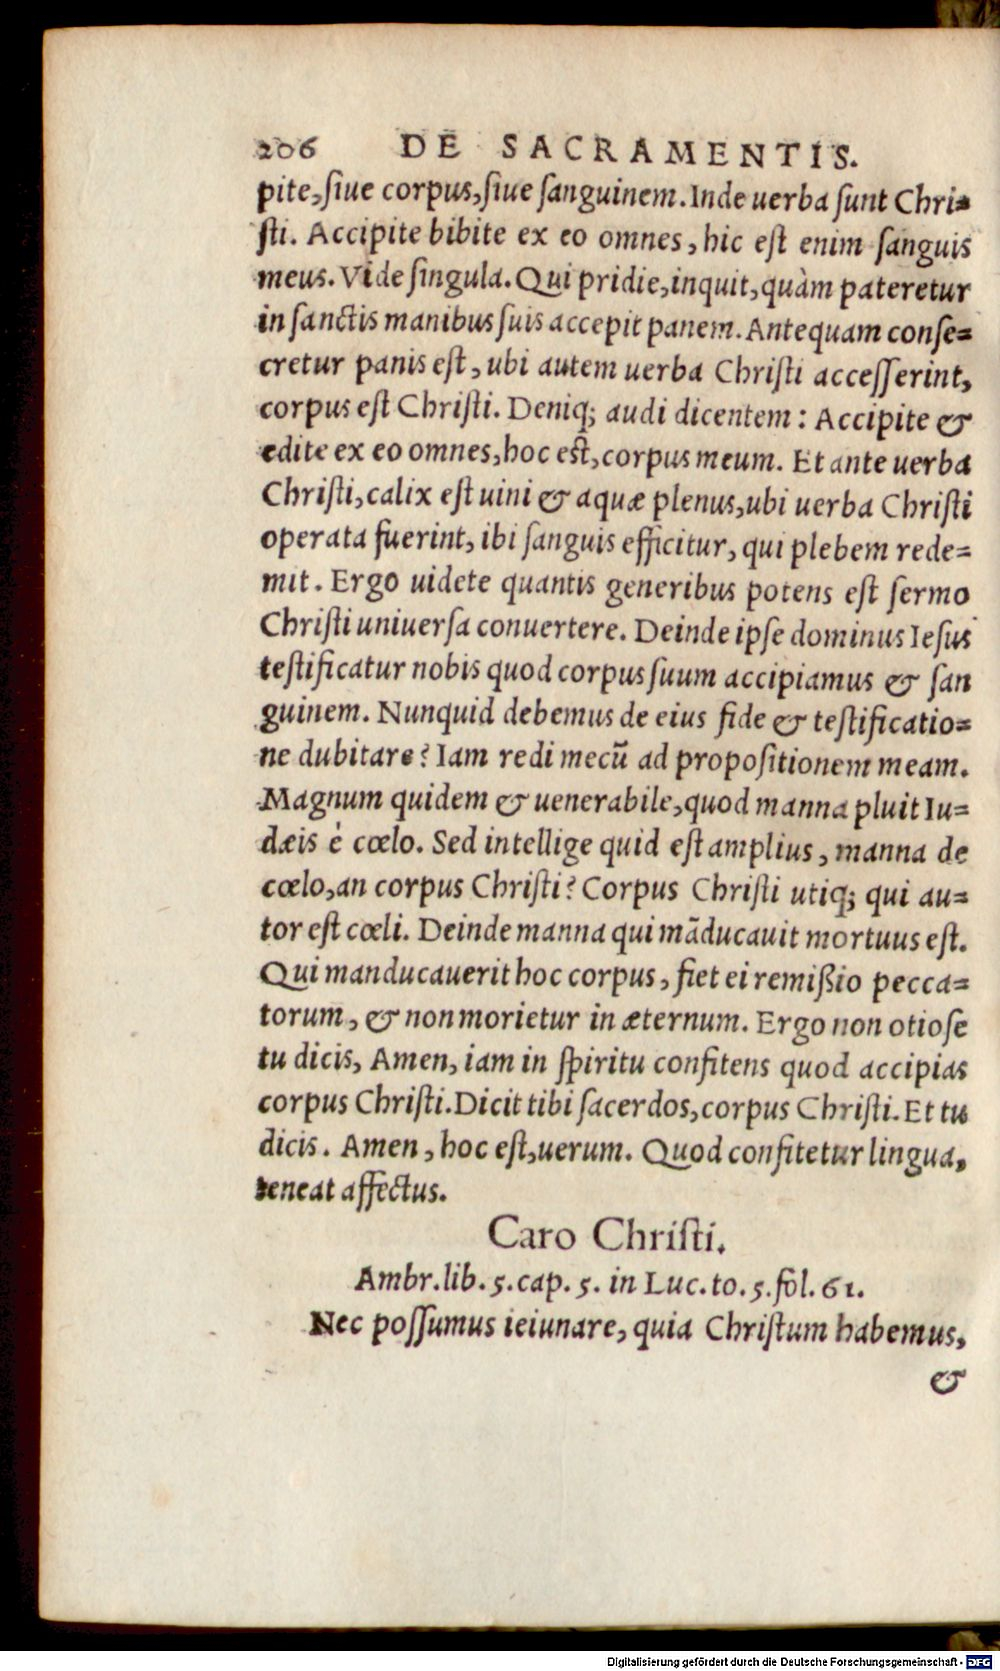 206 DE SACRAMENTIS.
pite, ſiue corpus, ſiue ſanguinem. Inde uerba ſunt Chri=
ſti. Accipite bibite ex eo omnes, hic eſt enim ſanguis
meus. Vide ſingula. Qui pridie, inquit, quàm pateretur
in ſanctis manibus ſuis accepit panem. Antequam conſe=
cretur panis eſt, ubi autem uerba Chriſti acceſſerint,
corpus eſt Chriſti. Deniq; audi dicentem: Accipite &
edite ex eo omnes, hoc eſt, corpus meum. Et ante uerba
Chriſti, calix eſt uini & aquæ plenus, ubi uerba Chriſti
operata fuerint, ibi ſanguis efficitur, qui plebem rede=
mit. Ergo uidete quantis generibus potens eſt ſermo
Chriſti uniuerſa conuertere. Deinde ipſe dominus Ieſus
teſtificatur nobis quod corpus ſuum accipiamus & ſan
guinem. Nunquid debemus de eius fide & teſtificatio=
ne dubitare? Iam redi mecũ ad propoſitionem meam.
Magnum quidem & uenerabile, quod manna pluit Iu=
dæis è cœlo. Sed intellige quid eſt amplius, manna de
cœlo, an corpus Chriſti? Corpus Chriſti utiq; qui au=
tor eſt cœli. Deinde manna qui mãducauit mortuus eſt.
Qui manducauerit hoc corpus, fiet ei remißio pecca=
torum, & non morietur in æternum. Ergo non otioſe
tu dicis, Amen, iam in ſpiritu confitens quod accipias
corpus Chriſti. Dicit tibi ſacerdos, corpus Chriſti. Et tu
dicis. Amen, hoc eſt, uerum. Quod confitetur lingua,
teneat affectus.
Caro Chriſti.
Ambr. lib. 5. cap. 5. in Luc. to. 5. fol. 61.
Nec poſſumus ieiunare, quia Chriſtum habemus,
&
Digitalisierung gefördert durch die Deutsche Forschungsgemeinschaft - DFG